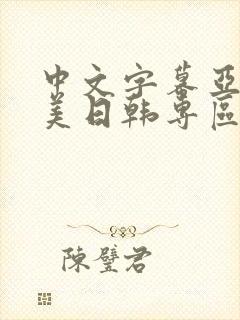 中文字幕亚
美日韩专區
陳璧君